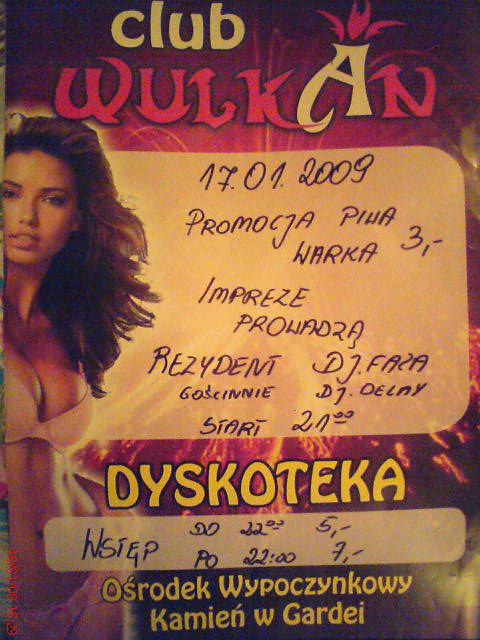 club
WULKAN
17.01.2009
PROMOCJA PIWA
WARKA 3,-
IMPREZE
PROWADZĄ
REZYDENT DJ. FAZA
GOŚCINNIE DJ. DELAY
START 21⁰⁰
DYSKOTEKA
WSTĘP DO 22⁰⁰ 5,-
PO 22:00 7,-
Ośrodek Wypoczynkowy
Kamień w Gardei